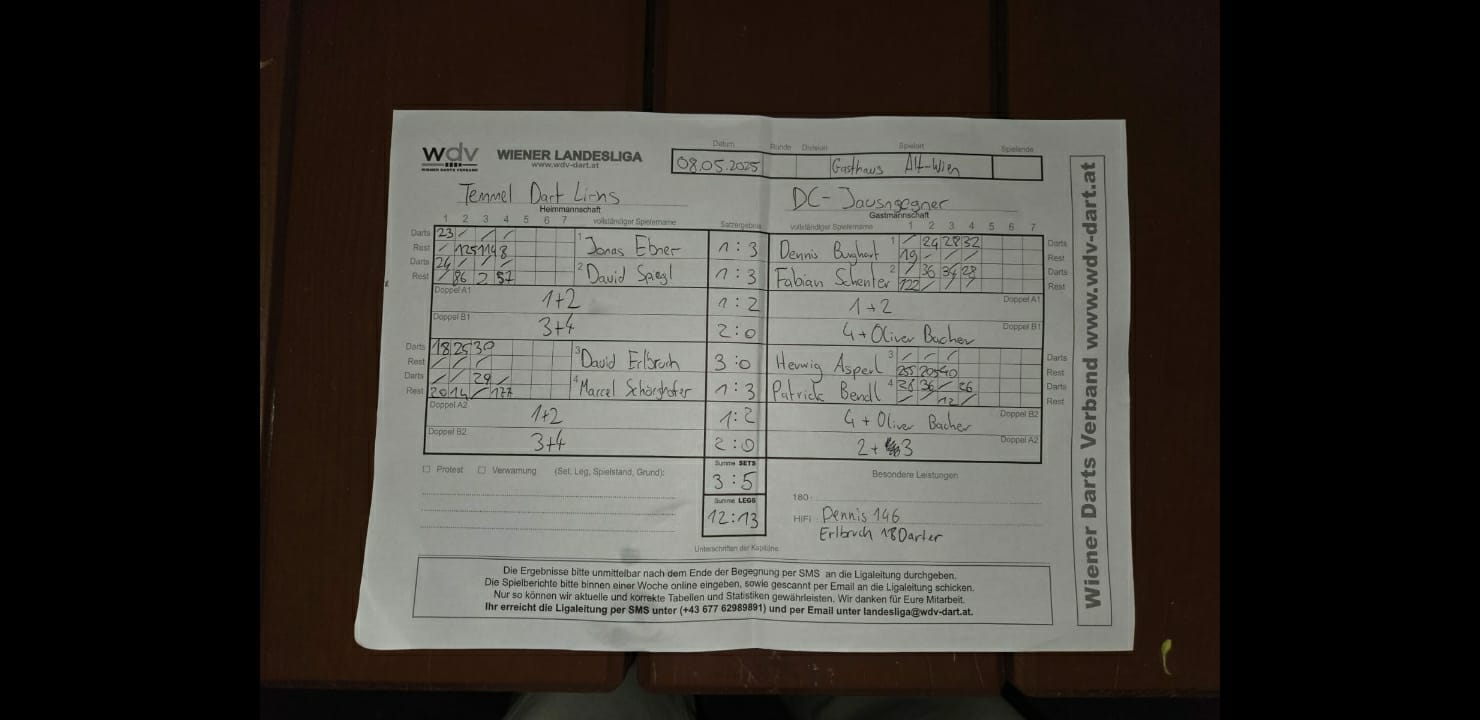 wdv
WIENER DARTS VERBAND
WIENER LANDESLIGA
www.wdv-dart.at
Datum Runde Division Spielort Spielende
08.05.2025 Gasthaus Alt-Wien
Temmel Dart Lions DC-Jausngegner
Heimmannschaft Gastmannschaft
1 2 3 4 5 6 7 vollständiger Spielername Satzergebnis vollständiger Spielername 1 2 3 4 5 6 7
Darts 23 / / / 1 Jonas Ebner 1:3 Dennis Burghart 1 / 24 28 32 Darts
Rest / 125 114 8 19 / / / Rest
Darts 24 / / / 2 David Spiegl 1:3 Fabian Schenter 2 / 36 34 28 Darts
Rest / 86 2 57 122 / / / Rest
Doppel A1 1+2 1:2 1+2 Doppel A1
Doppel B1 3+4 2:0 4+Oliver Bacher Doppel B1
Darts 18 25 30 3 David Erlbruch 3:0 Herwig Asperl 3 / / / Darts
Rest / / / 255 205 40 Rest
Darts / / 29 / 4 Marcel Schörghofer 1:3 Patrick Bendl 4 28 36 / 26 Darts
Rest 20 14 / 177 / / 12 / Rest
Doppel A2 1+2 1:2 4+Oliver Bacher Doppel B2
Doppel B2 3+4 2:0 2+ 3 Doppel A2
Protest Verwarnung (Set, Leg, Spielstand, Grund): Summe SETS Besondere Leistungen
3:5
180:
Summe LEGS
12:13
HiFi: Dennis 146
Erlbruch 18Darter
Unterschriften der Kapitäne
Die Ergebnisse bitte unmittelbar nach dem Ende der Begegnung per SMS an die Ligaleitung durchgeben.
Die Spielberichte bitte binnen einer Woche online eingeben, sowie gescannt per Email an die Ligaleitung schicken.
Nur so können wir aktuelle und korrekte Tabellen und Statistiken gewährleisten. Wir danken für Eure Mitarbeit.
Ihr erreicht die Ligaleitung per SMS unter (+43 677 62989891) und per Email unter landesliga@wdv-dart.at.
Wiener Darts Verband www.wdv-dart.at